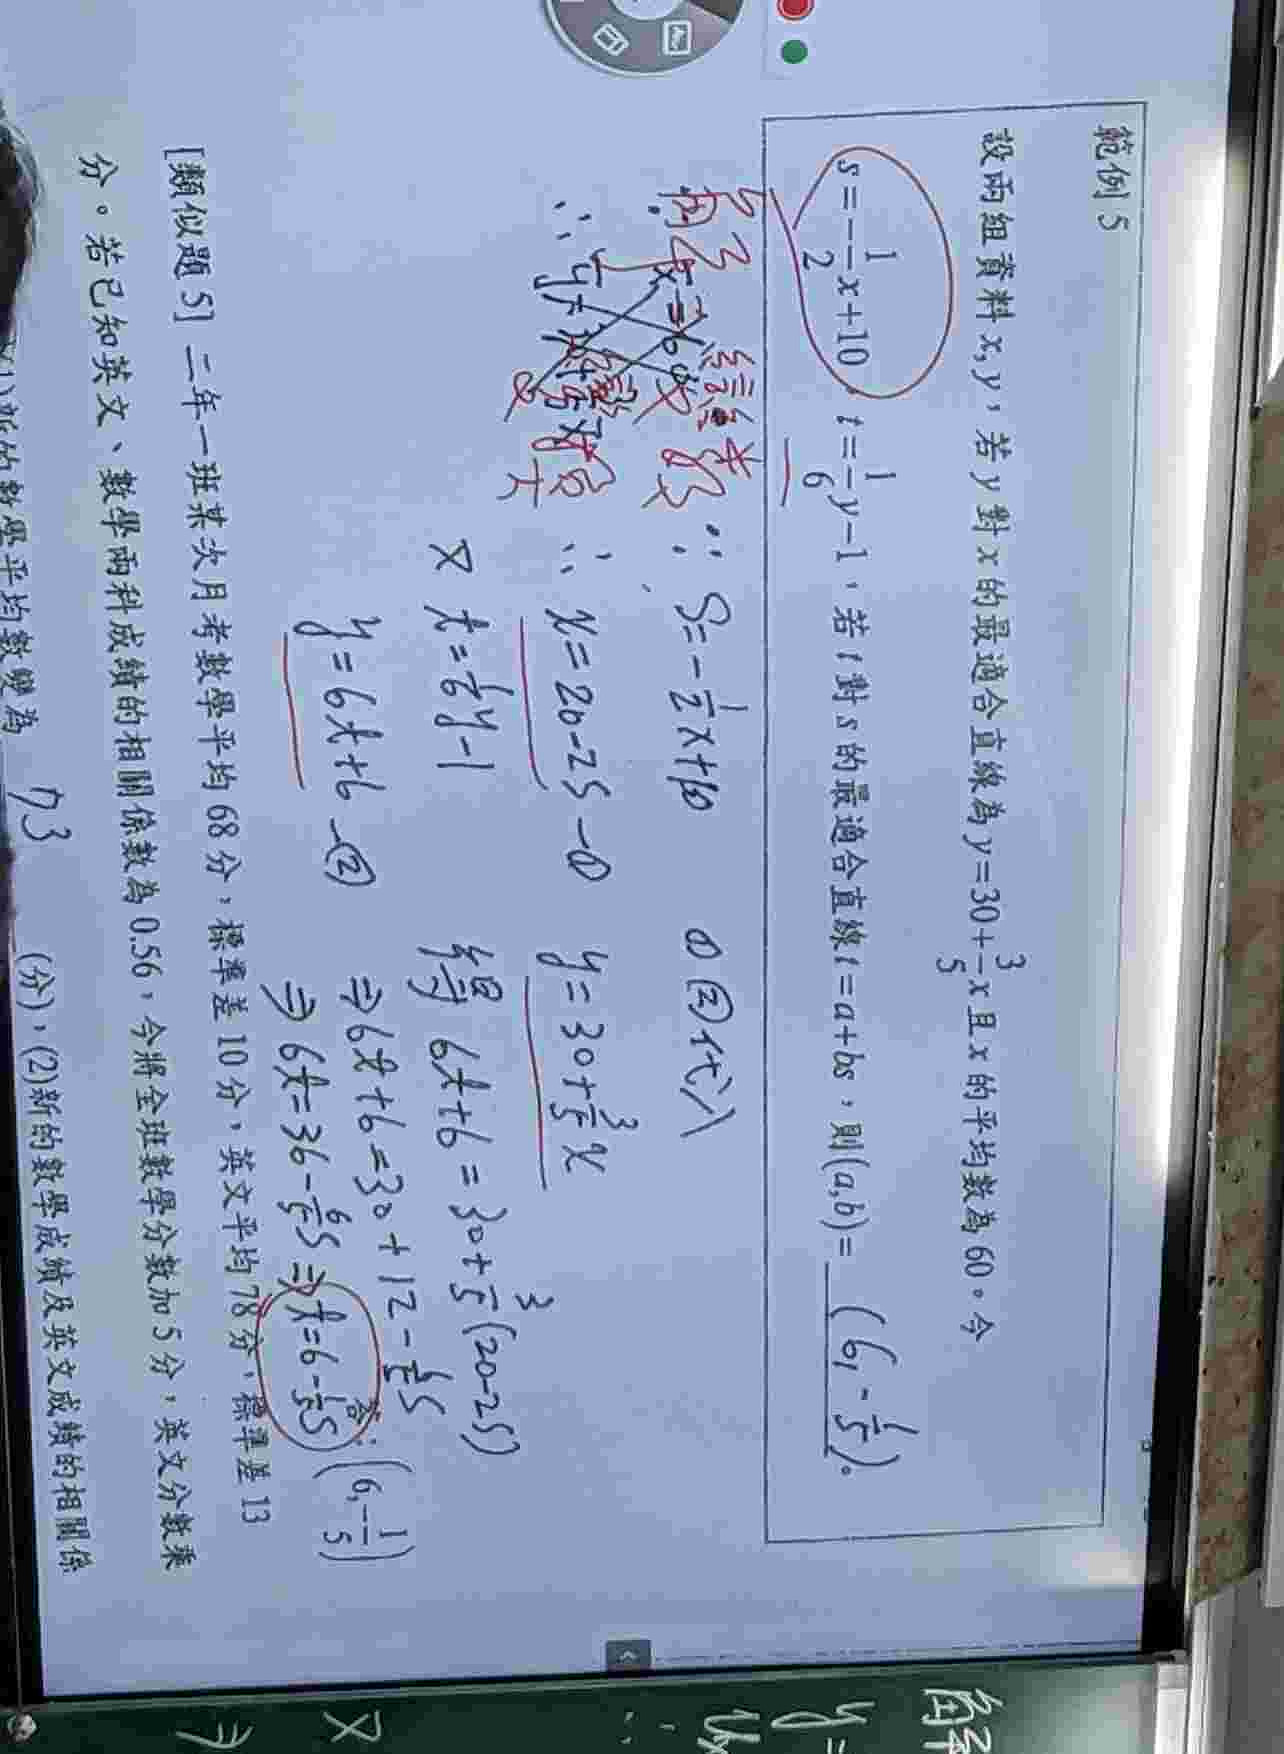 範例 5
設兩組資料 x, y，若 y 對 x 的最適合直線為 y=30+3/5x 且 x 的平均數為 60。今
s=-1/2x+10，t=1/6y-1，若 t 對 s 的最適合直線 t=a+bs，則(a,b)= (6, -1/5)。
∵ S=-1/2x+10
∴ x=20-2S -①
又 t=1/6y-1
y=6t+6 -②
①②代入
y=30+3/5x
得 6t+6=30+3/5(20-2S)
⇒6t+6=30+12-6/5S
⇒6t=36-6/5S⇒t=6-1/5S
答：(6,-1/5)
[類似題 5] 二年一班某次月考數學平均 68 分，標準差 10 分，英文平均 78 分，標準差 13
分。若已知英文、數學兩科成績的相關係數為 0.56，今將全班數學分數加 5 分，英文分數乘
(1)新的數學平均數變為 73 (分)，(2)新的數學成績及英文成績的相關係
解
y=
又